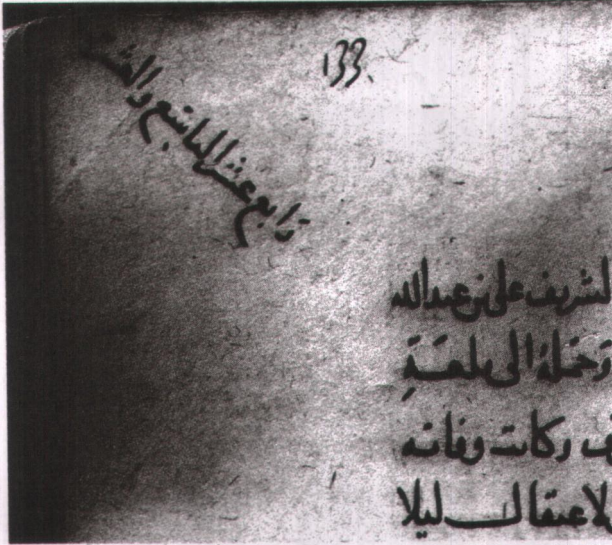 133.
رابع عشر التاسع
لشريف على بن عبدالله
وحمله الى قلعة
وكانت وفاته
لاعتقال ليلا